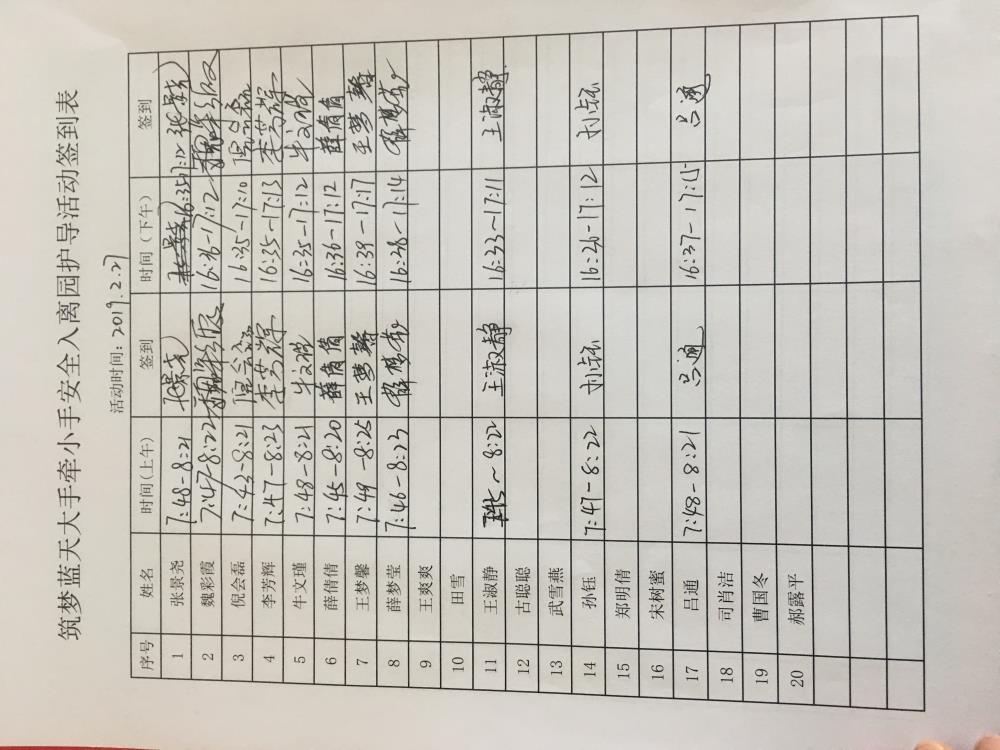 筑梦蓝天大手牵小手安全入离园护导活动签到表
活动时间：2019.2.27
序号 姓名 时间（上午） 签到 时间（下午） 签到
1 张景尧 7:48-8:21 张景尧 16:35-17:12 张景尧
2 魏彩霞 7:47-8:22 魏彩霞 16:36-17:12 魏彩霞
3 倪会磊 7:43-8:21 倪会磊 16:35-17:10 倪会磊
4 李芳辉 7:47-8:23 李芳辉 16:35-17:13 李芳辉
5 牛文瑾 7:48-8:21 牛文瑾 16:35-17:12 牛文瑾
6 薛倩倩 7:45-8:20 薛倩倩 16:36-17:12 薛倩倩
7 王梦馨 7:49-8:25 王梦馨 16:39-17:17 王梦馨
8 薛梦莹 7:46-8:23 薛梦莹 16:38-17:14 薛梦莹
9 王爽爽
10 田雪
11 王淑静 7:45~8:22 王淑静 16:33~17:11 王淑静
12 古聪聪
13 武雪燕
14 孙钰 7:47-8:22 孙钰 16:36-17:12 孙钰
15 郑明倩
16 宋树蜜
17 吕通 7:48-8:21 吕通 16:37-17:15 吕通
18 司肖洁
19 曹国冬
20 郝露平